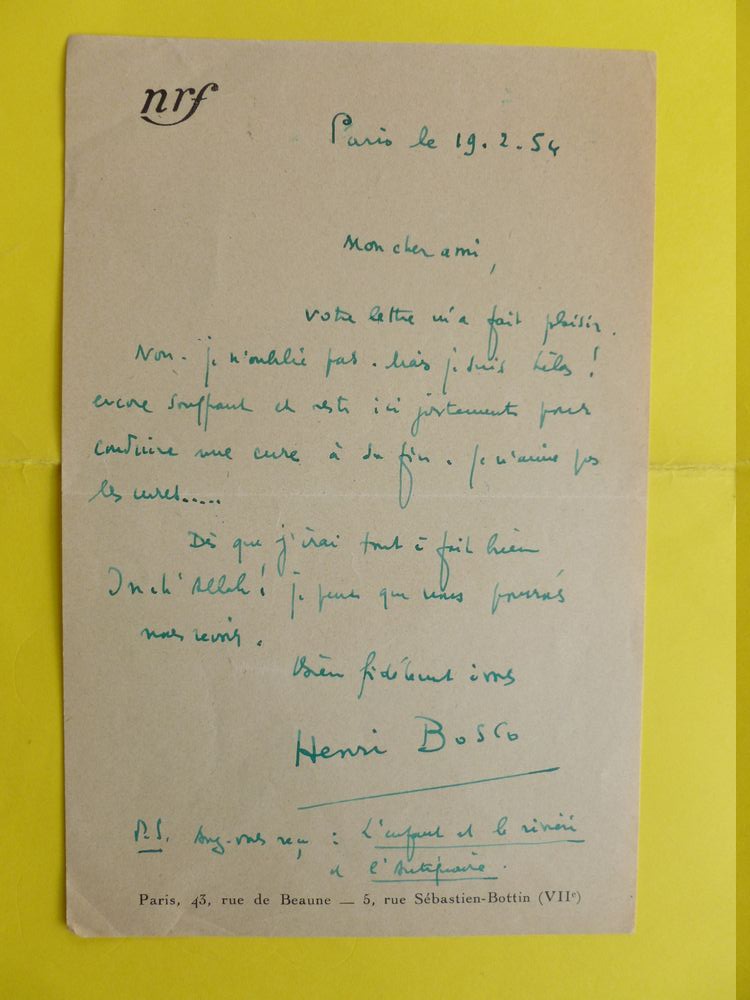 nrf
Paris le 19.2.54
Mon cher ami,
votre lettre m'a fait plaisir.
Non. je n'oublie pas. Mais je suis hélas !
encore souffrant et reste ici justement pour
conduire une cure à sa fin. Je n'aime pas
les cures.....
Dès que j'irai tout à fait bien
Inch'Allah ! je pense que nous pourrons
nous revoir.
Bien fidèlement à vous
Henri Bosco
P.S. Avez-vous reçu : L'enfant et la rivière
et l'Antiquaire.
Paris, 43, rue de Beaune — 5, rue Sébastien-Bottin (VIIe)